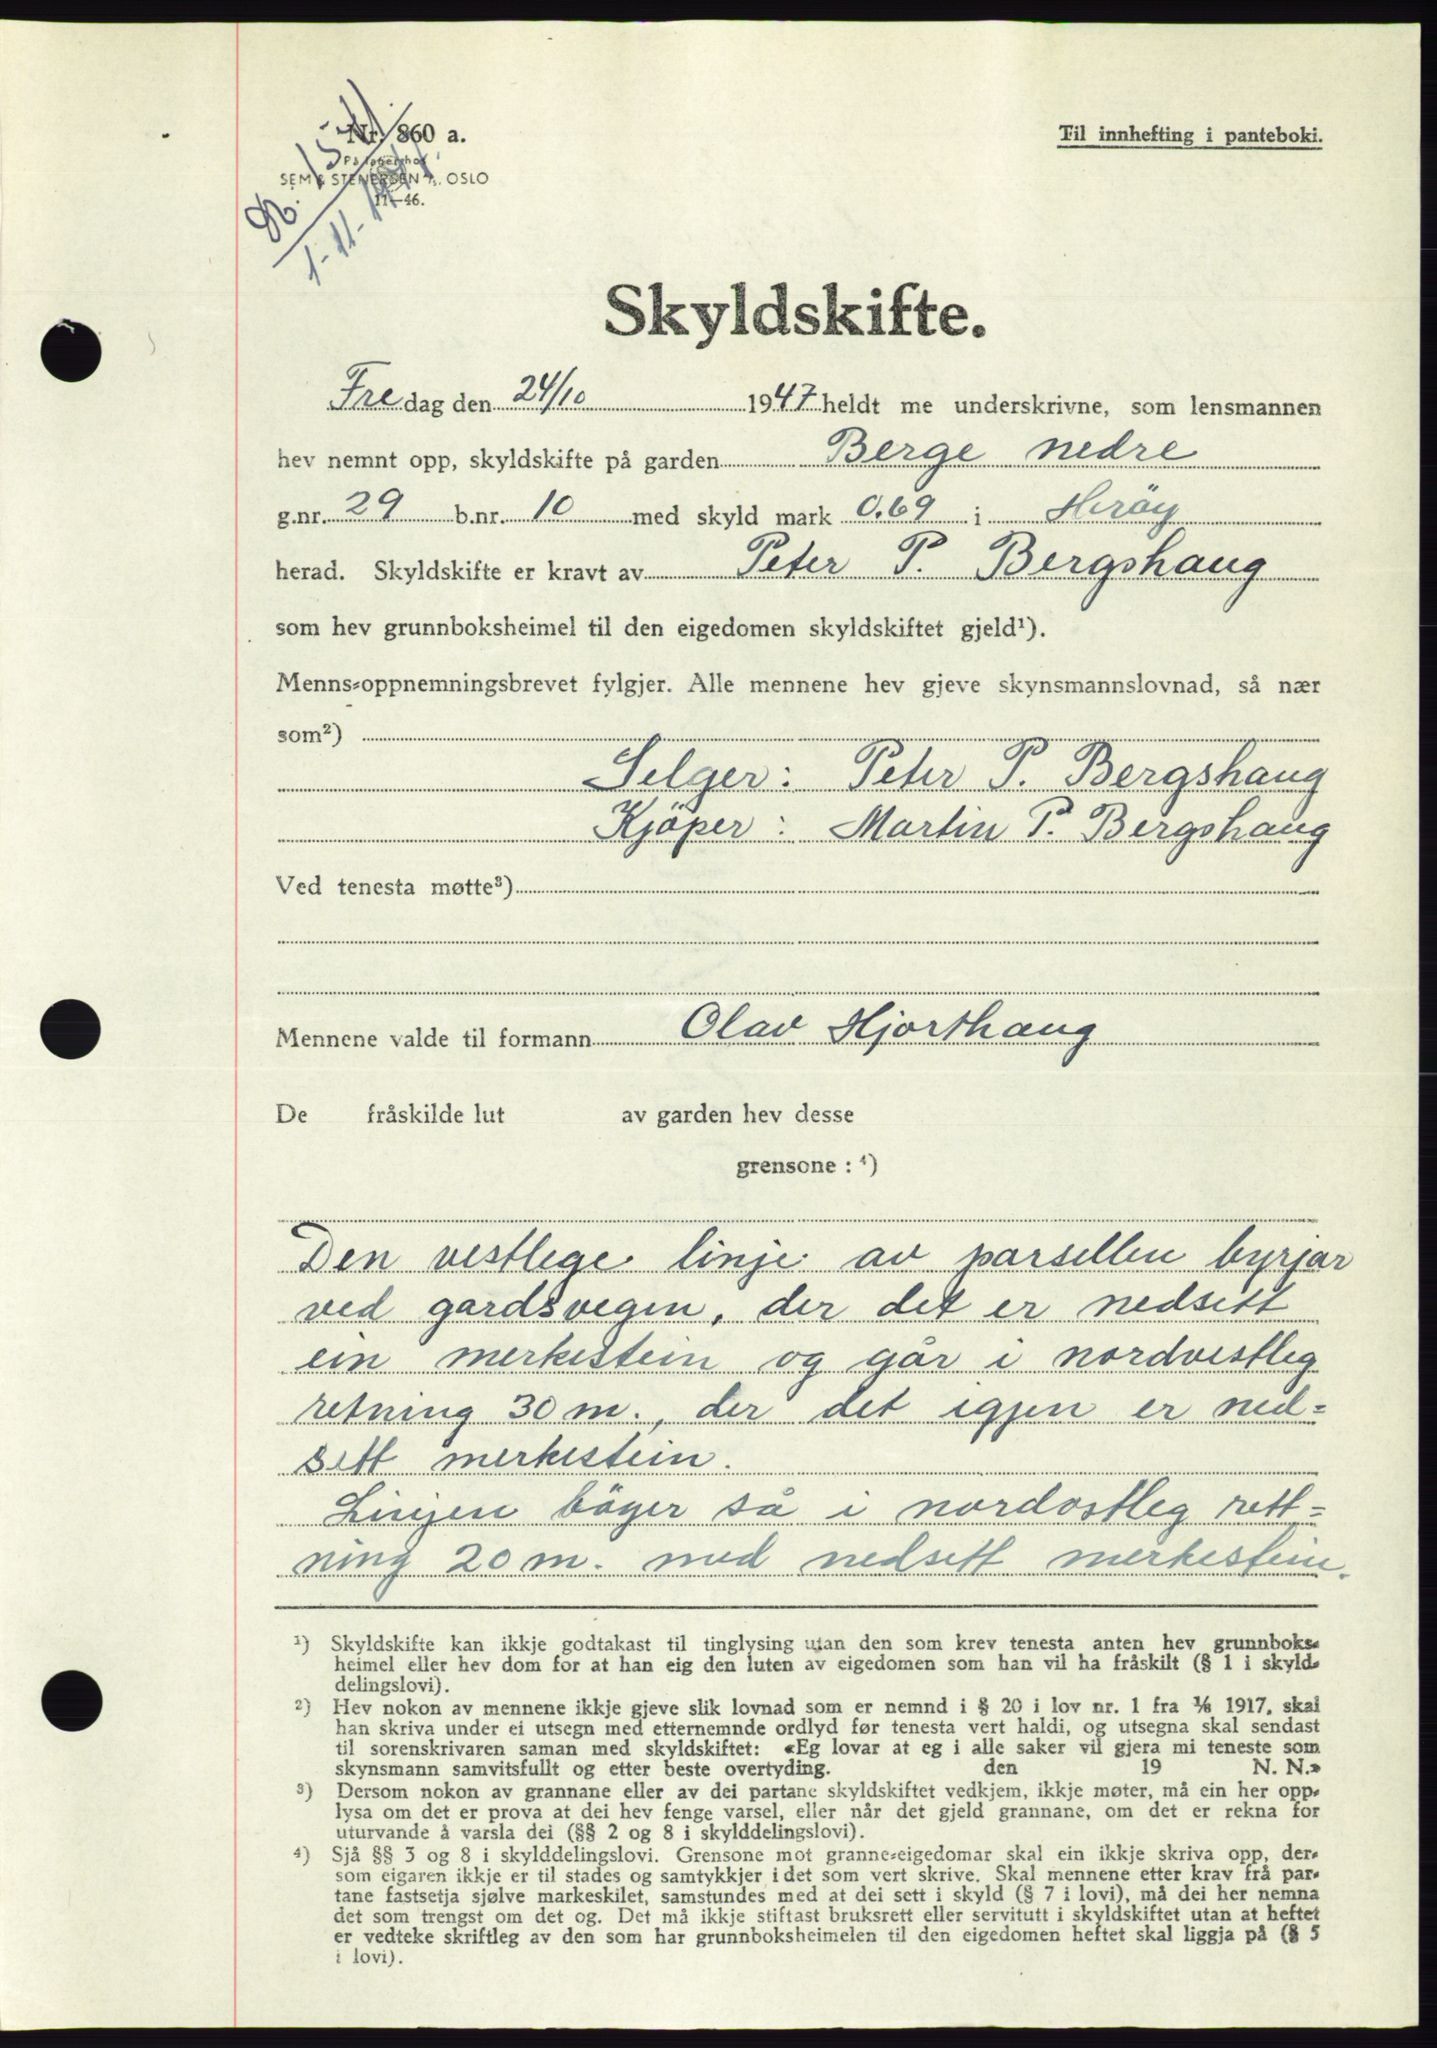 Nr. 860 a.
Til innhefting i panteboki.
SEM & STENERSEN A/S. OSLO
11—46.
1-11-1947.
Skyldskifte.
Fredag den 24/10 1947 heldt me underskrivne, som lensmannen
hev nemnt opp, skyldskifte på garden Berge nedre
g.nr. 29 b.nr. 10 med skyld mark 0.69 i Heröy
herad. Skyldskifte er kravt av Peter P. Bergshaug
som hev grunnboksheimel til den eigedomen skyldskiftet gjeld¹).
Menns-oppnemningsbrevet fylgjer. Alle mennene hev gjeve skynsmannslovnad, så nær
som²)
Selger: Peter P. Bergshaug
Kjöper: Martin P. Bergshaug
Ved tenesta møtte³)
Mennene valde til formann Olav Hjorthaug
De fråskilde lut av garden hev desse
grensone : ⁴)
Den vestlege linje av parsellen byrjar
ved gardsvegen, der det er nedsett
ein merkestein og går i nordvestleg
retning 30 m., der det igjen er ned=
sett merkestein.
Linjen böger så i nordostleg rett=
ning 20 m. med nedsett merkestein.
¹) Skyldskifte kan ikkje godtakast til tinglysing utan den som krev tenesta anten hev grunnboks-
heimel eller hev dom for at han eig den luten av eigedomen som han vil ha fråskilt (§ 1 i skyld-
delingslovi).
²) Hev nokon av mennene ikkje gjeve slik lovnad som er nemnd i § 20 i lov nr. 1 fra 1/6 1917, skal
han skriva under ei utsegn med etternemnde ordlyd før tenesta vert haldi, og utsegna skal sendast
til sorenskrivaren saman med skyldskiftet: «Eg lovar at eg i alle saker vil gjera mi teneste som
skynsmann samvitsfullt og etter beste overtyding. den 19 N. N.»
³) Dersom nokon av grannane eller av dei partane skyldskiftet vedkjem, ikkje møter, må ein her opp-
lysa om det er prova at dei hev fenge varsel, eller når det gjeld grannane, om det er rekna for
uturvande å varsla dei (§§ 2 og 8 i skylddelingslovi).
⁴) Sjå §§ 3 og 8 i skylddelingslovi. Grensone mot granne-eigedomar skal ein ikkje skriva opp, der-
som eigaren ikkje er til stades og samtykkjer i det som vert skrive. Skal mennene etter krav frå par-
tane fastsetja sjølve markeskilet, samstundes med at dei sett i skyld (§ 7 i lovi), må dei her nemna
det som trengst om det og. Det må ikkje stiftast bruksrett eller servitutt i skyldskiftet utan at heftet
er vedteke skriftleg av den som har grunnboksheimelen til den eigedomen heftet skal liggja på (§ 5
i lovi).